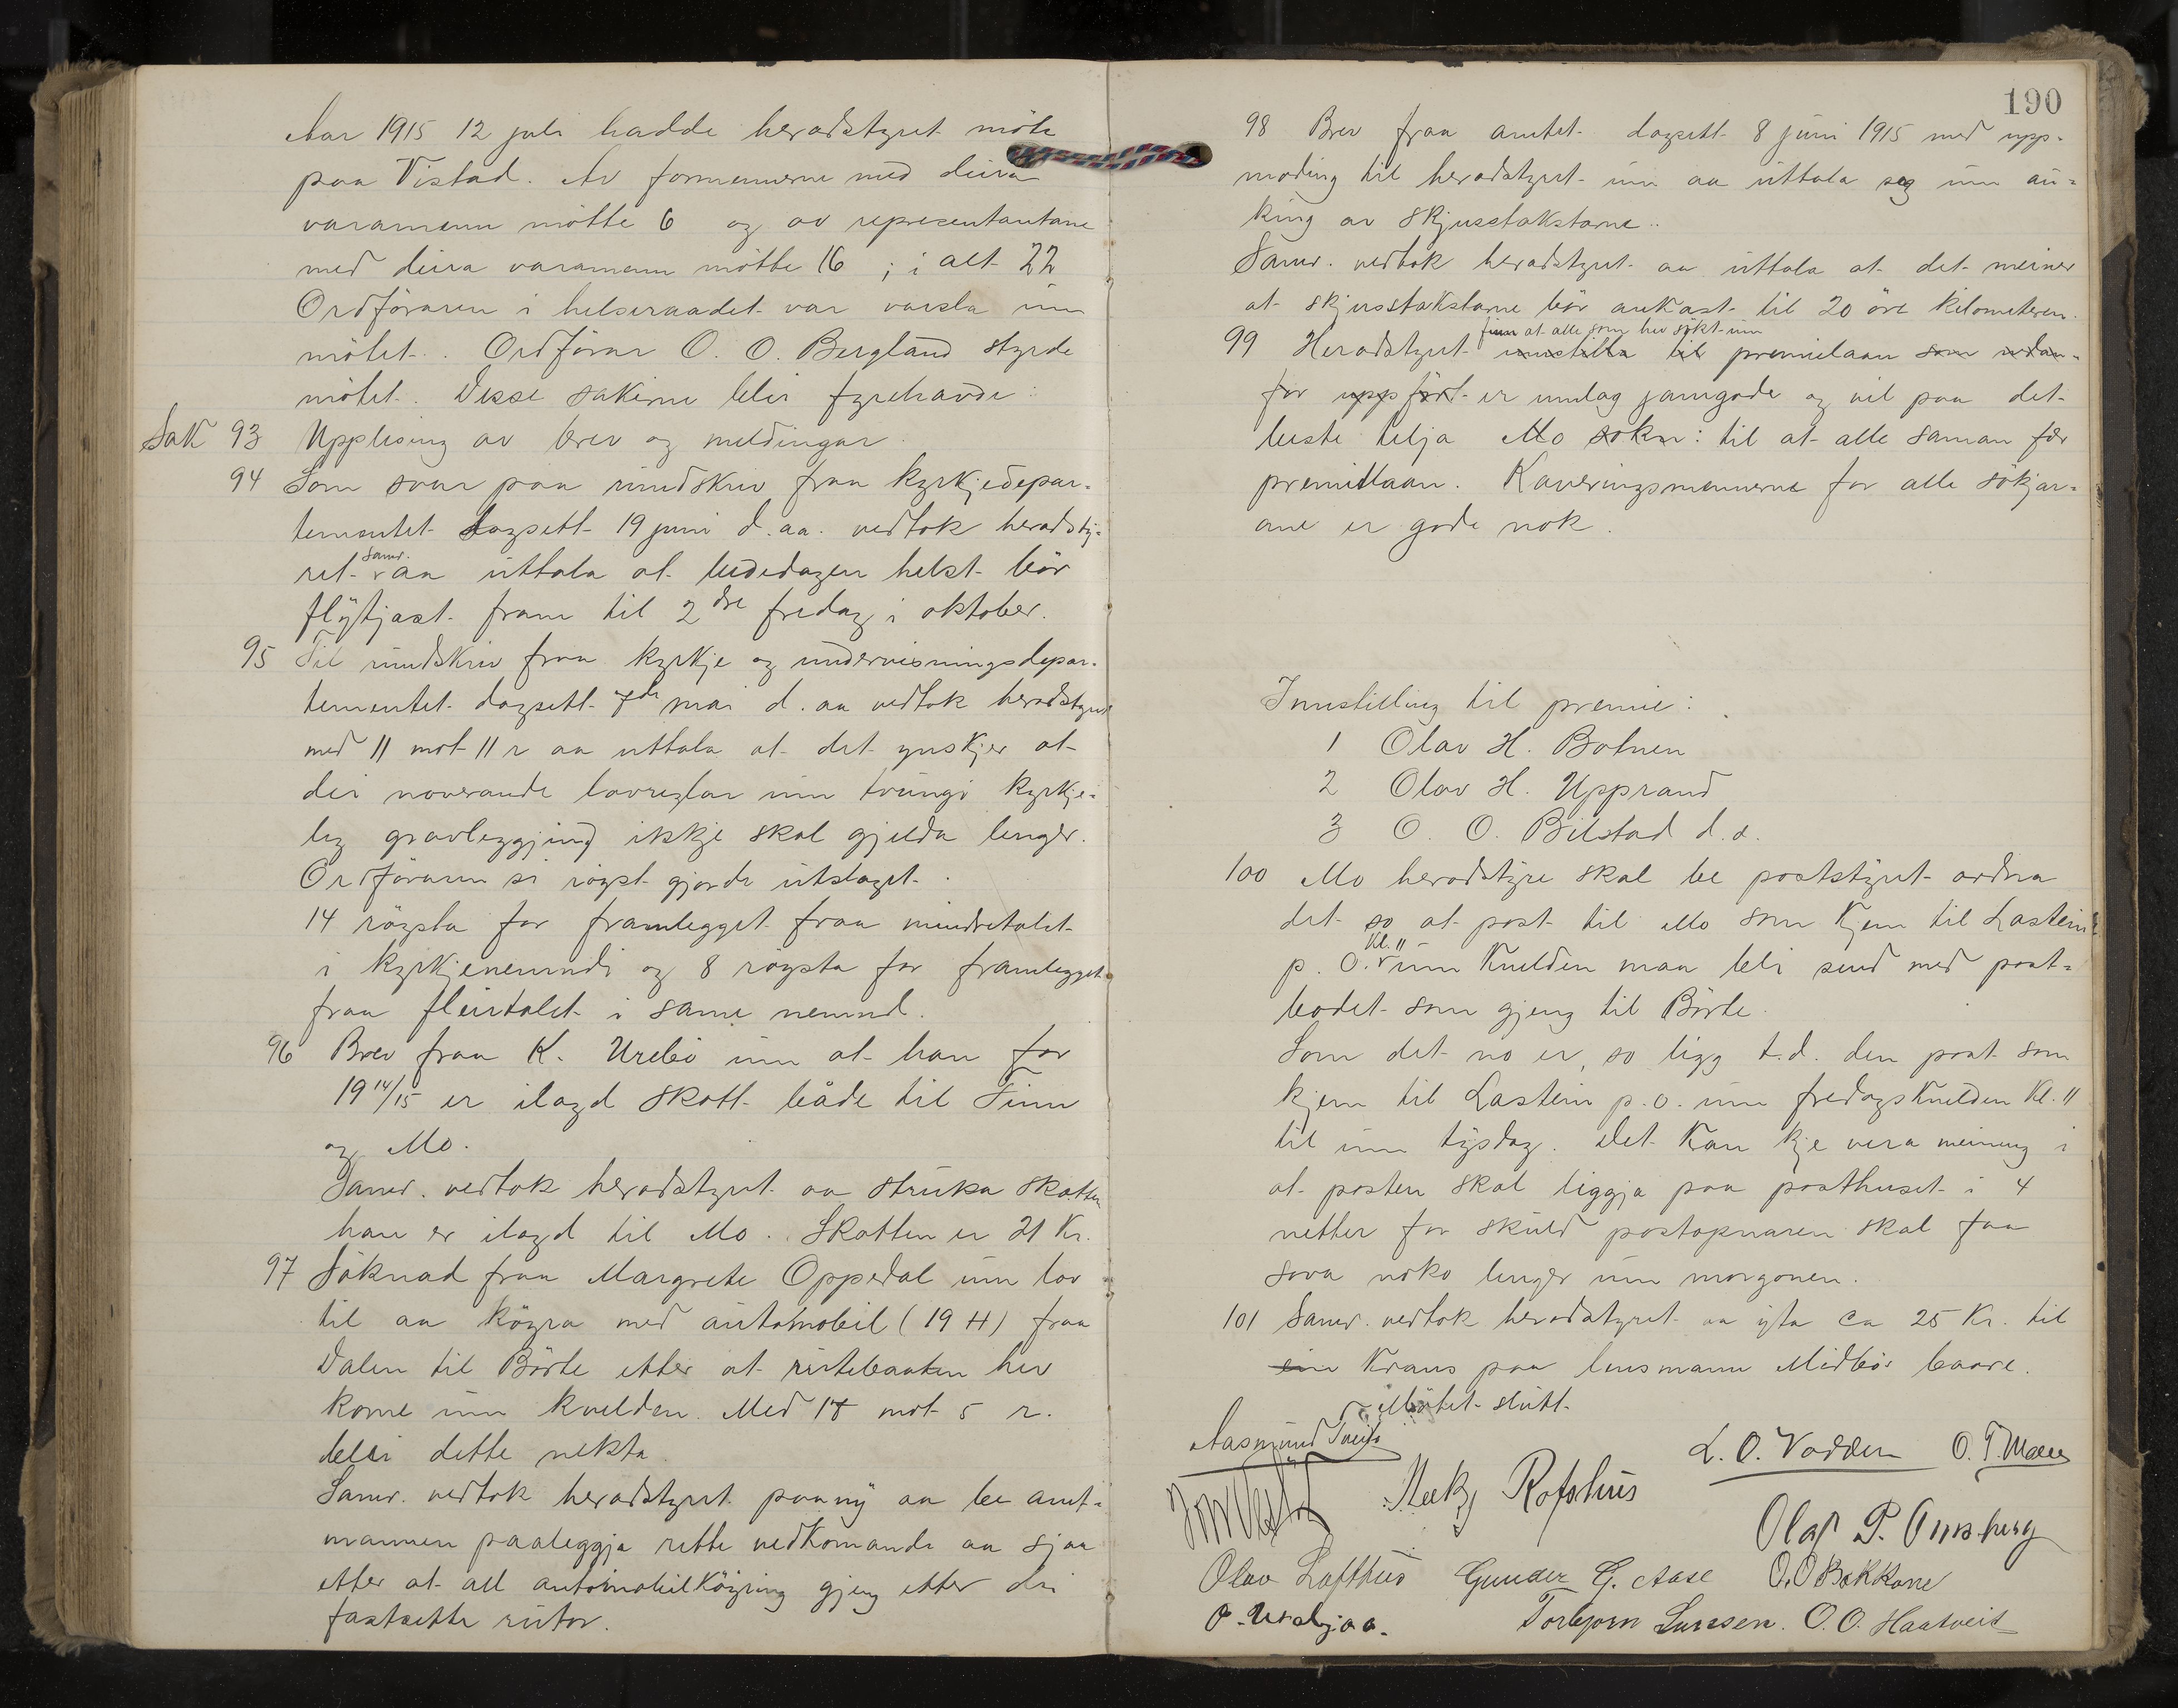 Aar 1915 12 juli hadde heradstyret möte
paa Vistad. Av formennerne med deira
varamenn mötte 6 og av representantane
med deira varamenn mötte 16 ; i alt 22
Ordföraren i helseraadet var varsla um
mötet. Ordförar O. O. Bergland styrde
mötet. Desse sakerne blei fyrehavde:
Sak 93 Upplesing av brev og meldingar.
94 Som svar paa rundskriv fraa kyrkjedepar-
tementet dagsett 19 juni d. aa. vedtok heradsty-
ret samr. aa uttala at bededagen helst bör
flytjast fram til 2dre fredag i oktober.
95 Til rundskriv fraa kyrkje og undervisningsdepar-
tementet dagsett 7de mai d. aa vedtok heradstyret
med 11 mot 11 r aa uttala at det ynskjer at
dei noverande lovreglar um tvungi kyrkje-
leg gravleggjing ikkje skal gjelda lenger.
Ordföraren si röyst gjorde utslaget.
14 röysta for framlegget fraa mindretalet
i kyrkjenemndi og 8 röysta for framlegget
fraa fleirtalet i same nemnd.
96 Brev fraa K. Urebö um at han for
1914/15 er ilagd skatt både til Tinn
og Mo.
Samr. vedtok heradstyret aa struka skatten
han er ilagd til Mo. Skatten er 21 Kr.
97 Söknad fraa Margrete Oppedal um lov
til aa köyra med automobil (19 H) fraa
Dalen til Börte etter at rutebaaten hev
kome um kvelden. Med 17 mot 5 r.
blei dette nekta.
Samr. vedtok heradstyret paany aa be amt-
mannen paaleggja rette vedkomande aa sjaa
etter at all automobilköyring gjeng etter dei
fastsette rutor.
190
98 Brev fraa amtet dagsett 8 juni 1915 med upp-
moding til heradstyret um aa uttala seg um au-
king av skjusstakstarne..
Samr. vedtok heradstyret aa uttala at det meiner
at skjusstakstarne bör aukast til 20 öre kilometeren.
finn at alle som hev sökt um
99 Heradstyret innstilla til premielaan som udan-
for uppfört er umlag jamgode og vil paa det
beste telja Mo sokn: til at alle saman fær
premielaan. Kaveringsmennerne for alle sökjar-
ane er gode nok.
Innstilling til premie:
1 Olav H. Botnen
2 Olav H. Upprand
3 O. O. Bilstad d. e.
100 Mo heradstyre skal be poststyret ordna
det so at post til Mo som kjem til Lastein
p. O. Kl. 11 um kvelden maa bli send med post-
bodet som gjeng til Börte.
Som det no er, so ligg t.d. den post som
kjem til Lastein p. o. um fredagskvelden Kl. 11
til um tysdag. Det kan kje vera meining i
at posten skal liggja paa posthuset i 4
netter for skuld postopnaren skal faa
sova noko lenger um morgonen.
101 Samr. vedtok heradstyret aa yta ca 25 Kr. til
ein Krans paa lensmann Midbö baare.
Mötet slutt.
Aasmund Tveito L. O. Vadder O. T. Moen
Rofshus
Olaf P. Omsberg
Olav Lofthus Gunder G. Aase O. O Bakkane
O. Urabjaa. Torbjorn Larssen. O. O. Haatveit